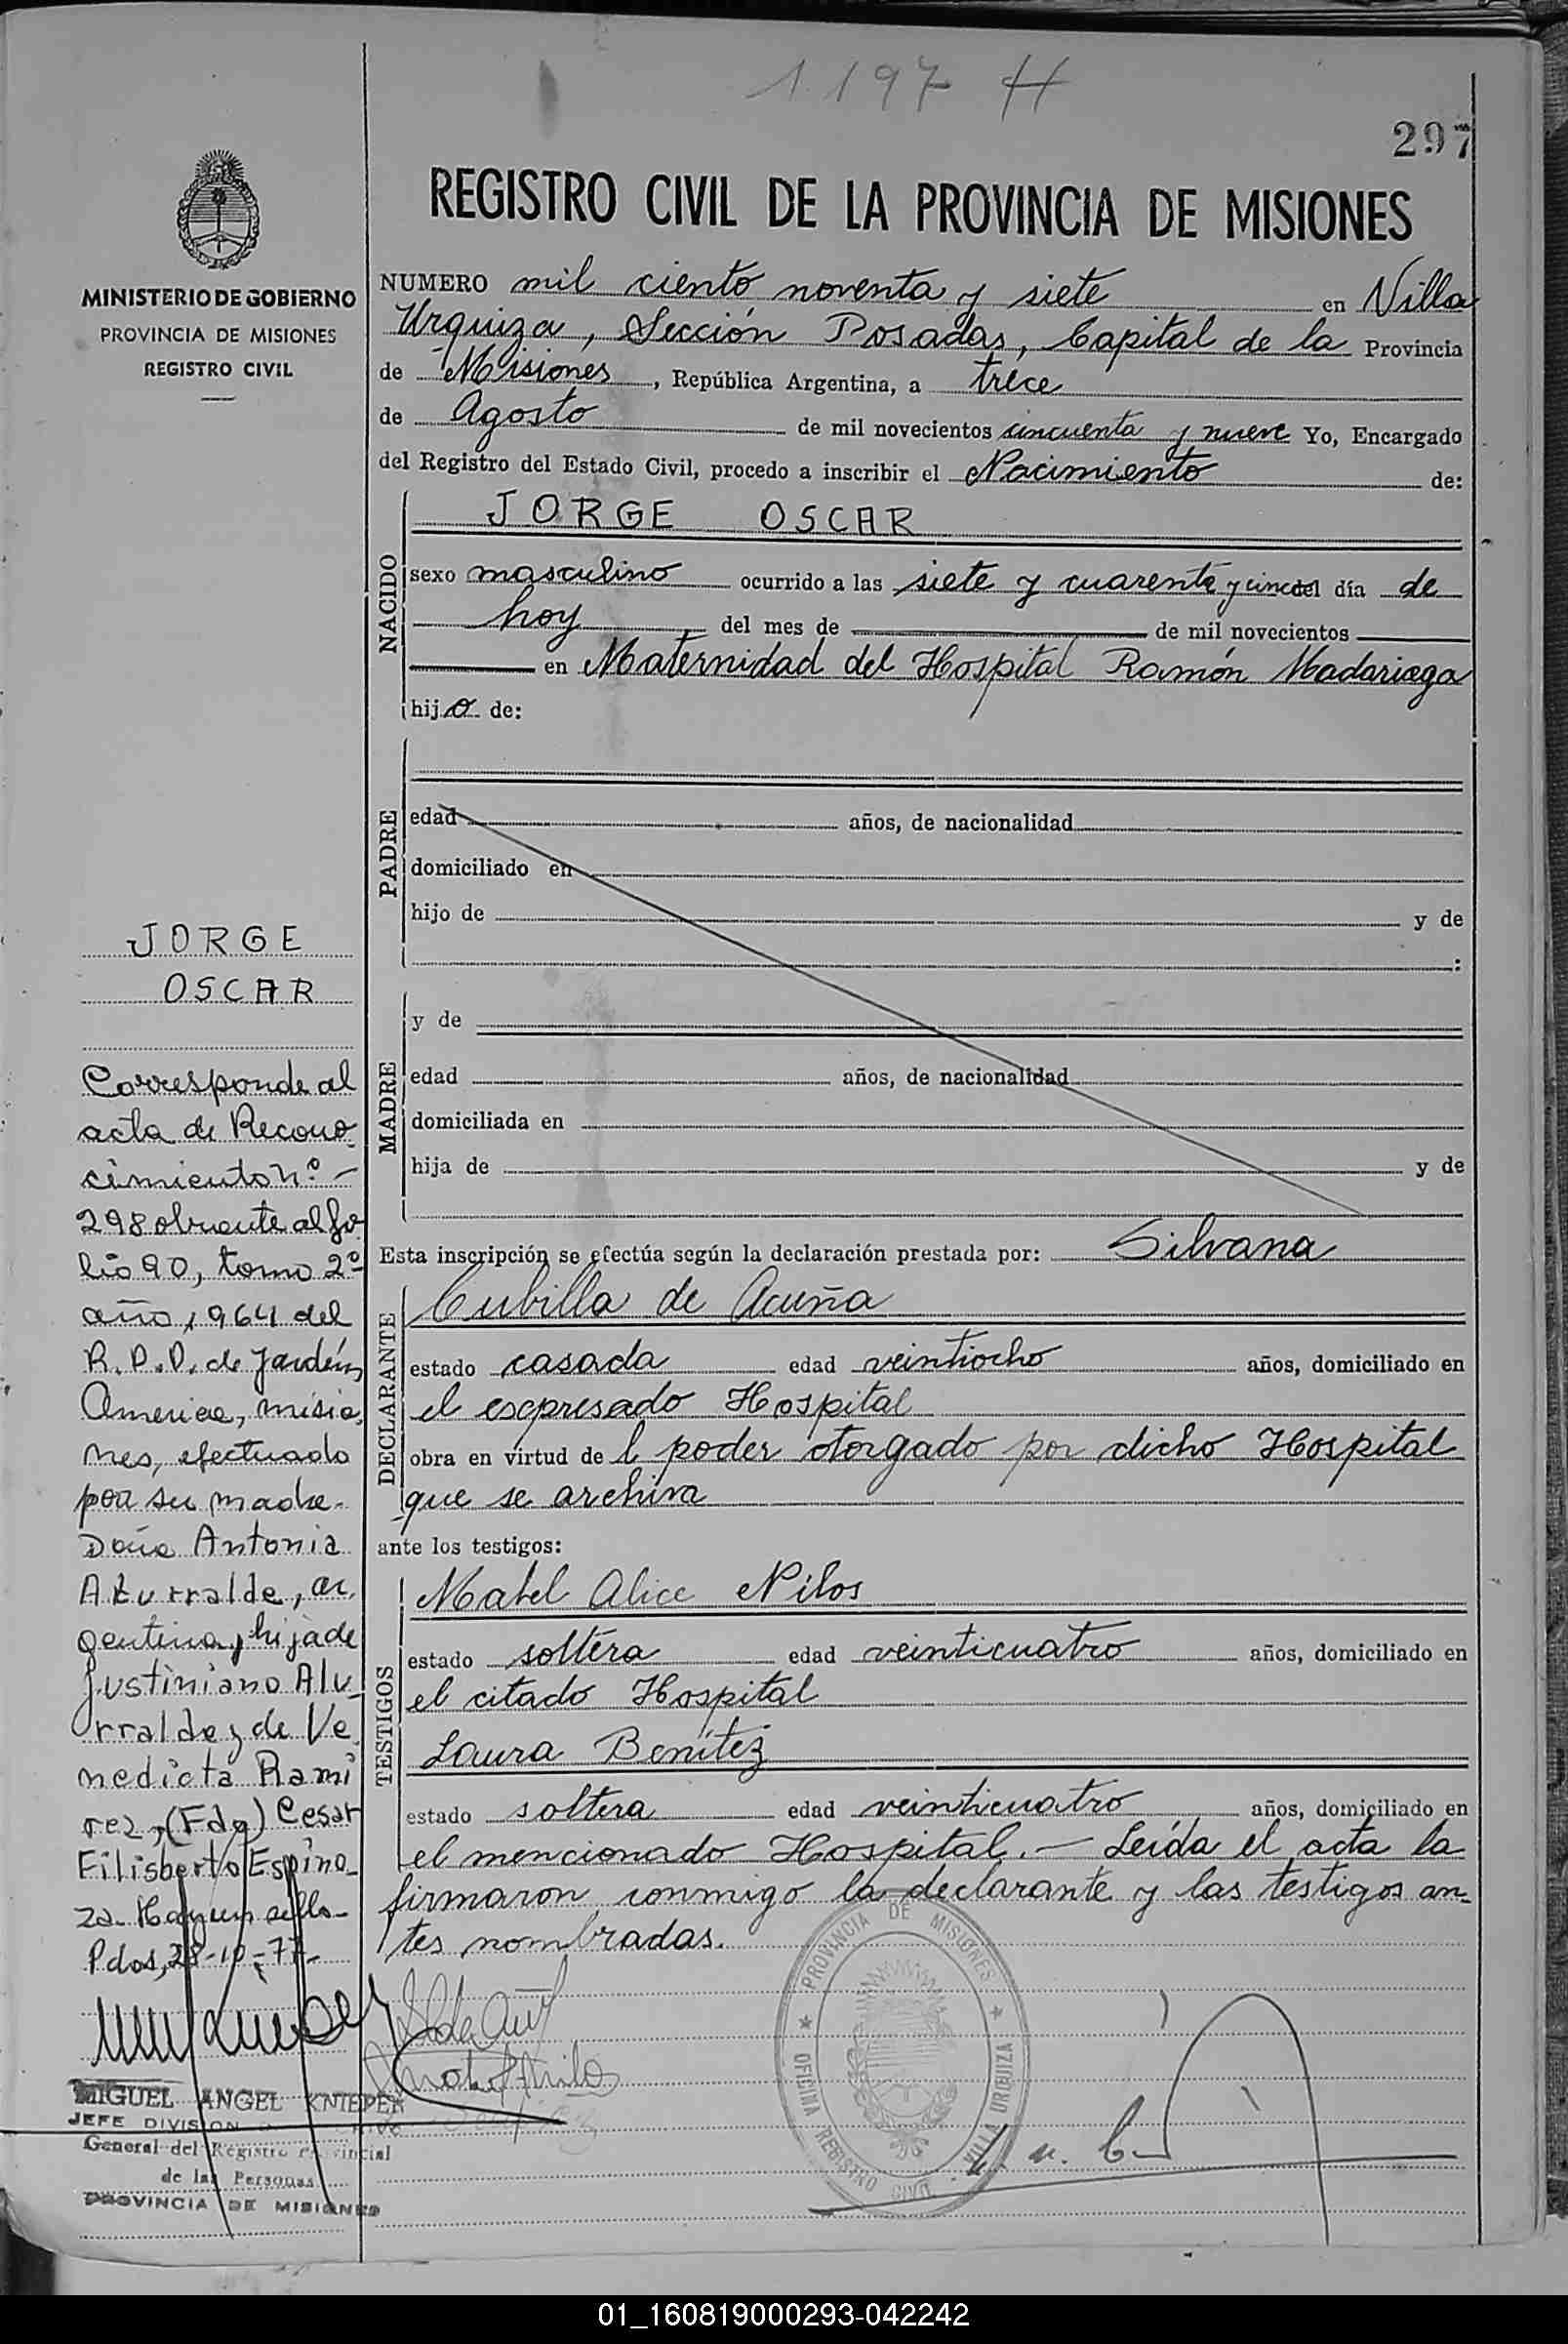 1.197 H
297
REGISTRO CIVIL DE LA PROVINCIA DE MISIONES
MINISTERIO DE GOBIERNO
PROVINCIA DE MISIONES
REGISTRO CIVIL
NUMERO mil ciento noventa y siete en Villa
Urquiza, Sección Posadas, Capital de la Provincia
de Misiones, República Argentina, a trece
de Agosto de mil novecientos cincuenta y nueve Yo, Encargado
del Registro del Estado Civil, procedo a inscribir el Nacimiento de:
NACIDO
JORGE OSCAR
sexo masculino ocurrido a las siete y cuarenta y cinco del día de
hoy del mes de de mil novecientos
en Maternidad del Hospital Ramón Madariaga
hijo de:
PADRE
edad años, de nacionalidad
domiciliado en
hijo de y de
:
MADRE
y de
edad años, de nacionalidad
domiciliada en
hija de y de
Esta inscripción se efectúa según la declaración prestada por: Silvana
DECLARANTE
Cubilla de Acuña
estado casada edad veintiocho años, domiciliado en
el esxpresado Hospital
obra en virtud de l poder otorgado por dicho Hospital
que se archiva
ante los testigos:
TESTIGOS
Mabel Alice Nilos
estado soltera edad veinticuatro años, domiciliado en
el citado Hospital
Laura Benítez
estado soltera edad veinticuatro años, domiciliado en
el mencionado Hospital.- Leída el acta la
firmaron conmigo la declarante y las testigos an-
tes nombradas.
JORGE
OSCAR
Corresponde al
acta de Recono
cimiento nº-
298 obrante al fo
lio 90, tomo 2º
año 1964 del
R.P.D. de Jardín
America, misio
nes, efectuado
por su madre-
Doña Antonia
Alurralde, ar
gentina, hija de
Justiniano Alu
rralde y de Ve
nedicta Rami
rez, (Fdo) Cesar
Filisberto Espino
za- Hay un sello-
Pdas, 28-10-77-
MIGUEL ANGEL KNIEPER
JEFE DIVISION
General del Registro Provincial
de las Personas
PROVINCIA DE MISIONES
PROVINCIA DE MISIONES
OFICINA REGISTRO CIVIL VILLA URQUIZA
01_160819000293-042242